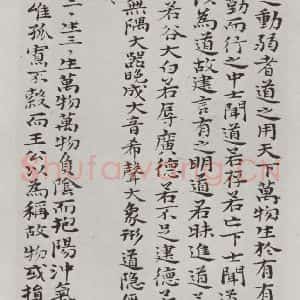 之動弱者道之用天下萬物生於有有
勤而行之中士聞道若存若亡下士聞道
以為道故建言有之明道若昧進道
若谷大白若辱廣德若不足建德若
無隅大器晚成大音希聲大象形道隱
生二生萬物萬物負陰而抱陽沖氣
唯孤寡不穀而王公為稱故物或損
Shufawang.CN